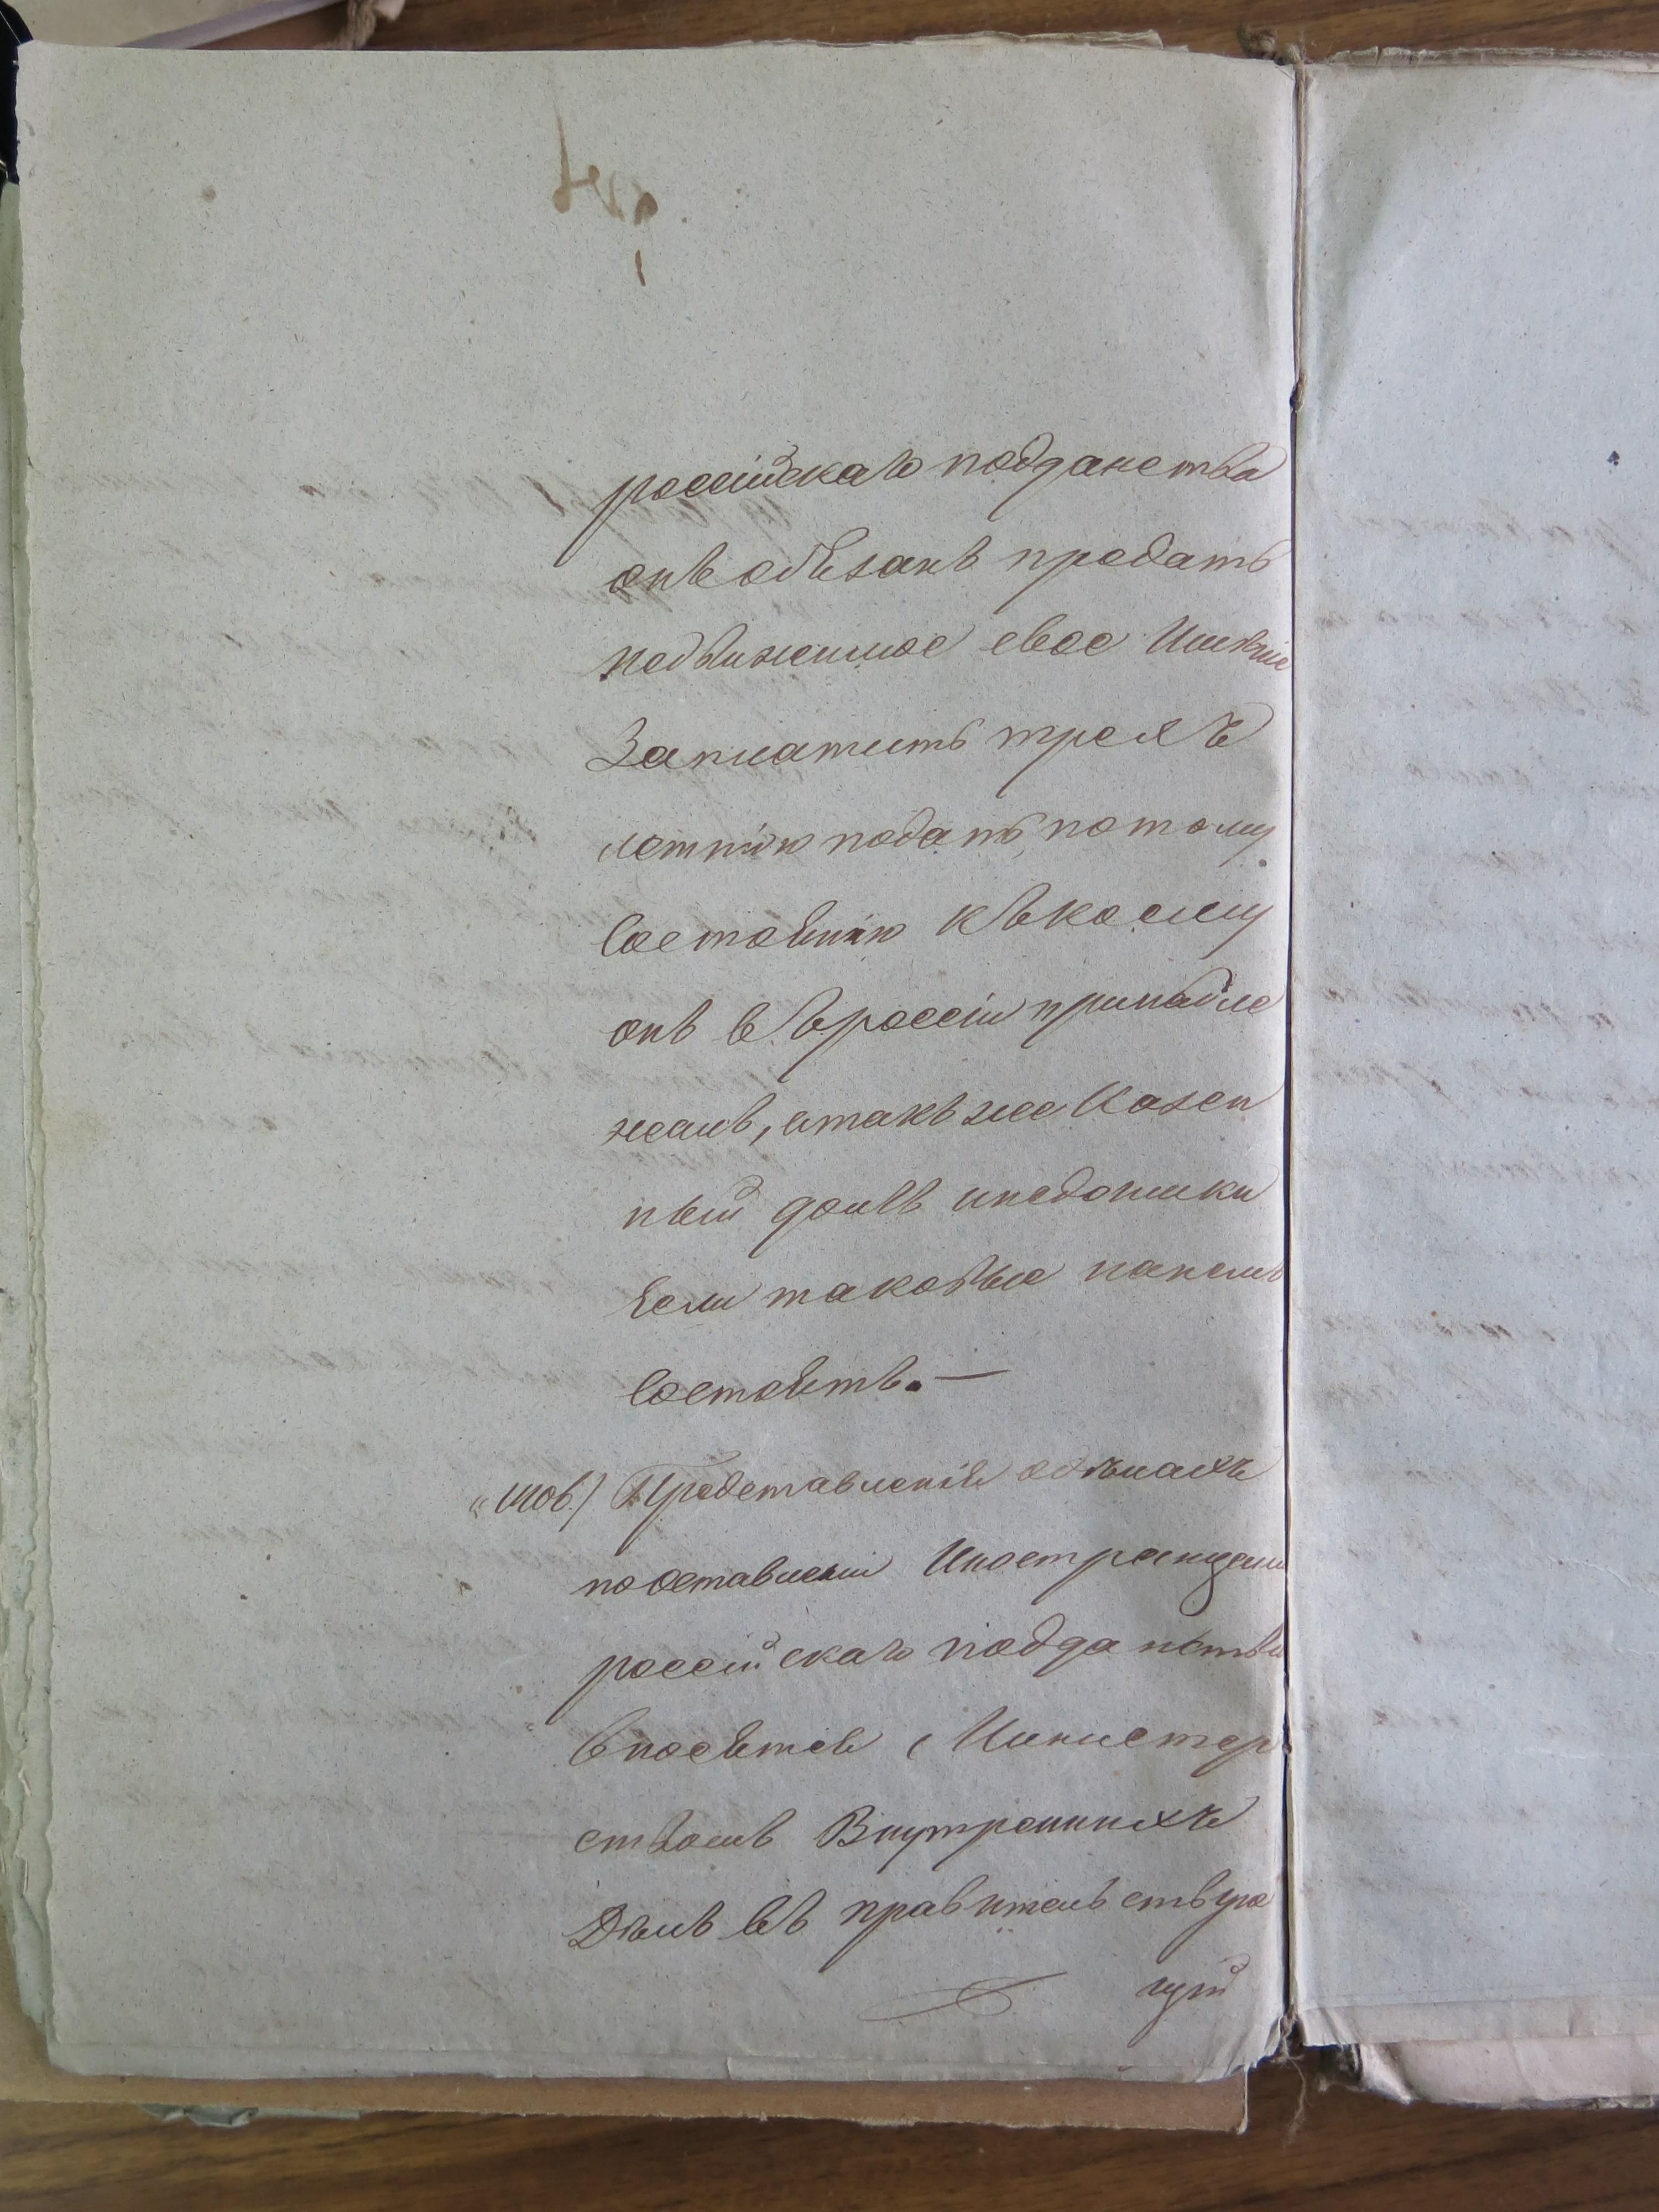 россійскаго подданства
онъ обязанъ продать
недвижимое свое Имѣніе
Заплатить трехъ
летнюю подать, потому
Состоянію къ коему
онъ въ россіи принадле
жалъ, атакъ же Казен
ный долгъ инедоимки
Если таковые нанемъ
Состоятъ. —
Представленія одѣлахъ
по оставленіи Иностранцами
россійскаго подданства
вносятся Министер
ствомъ Внутреннихъ
Дѣлъ въ правительствую
щій